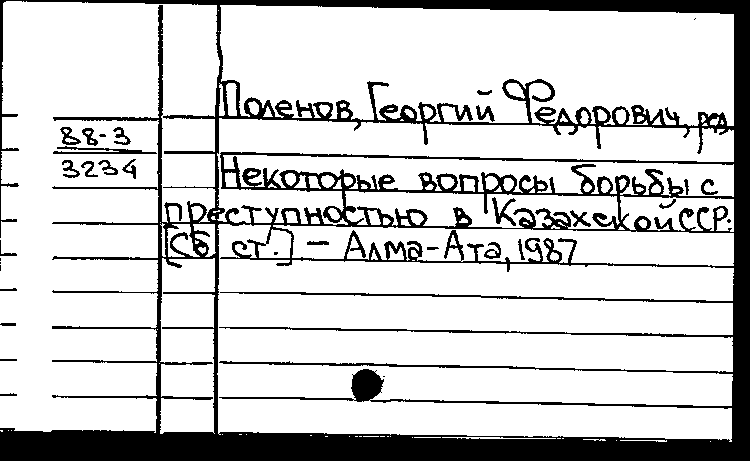 Поленов, Георгий Федорович, ред.
88-3
3234
Некоторые вопросы борьбы с
преступностью в Казахской ССР:
[Сб ст.] – Алма-Ата, 1987